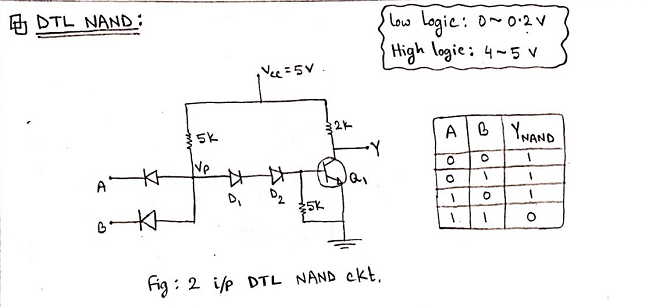 DTL NAND:
Low Logic: 0~0.2 V
High logic: 4~5 V
Vcc = 5V.
5K
2K
Y
Vp
A
D1
D2
Q1
5K
B
A B YNAND
0 0 1
0 1 1
1 0 1
1 1 0
Fig: 2 i/p DTL NAND ckt.